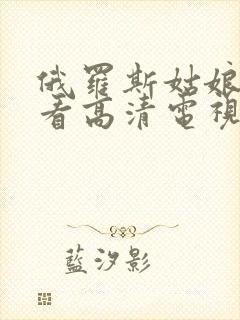 俄羅斯姑娘
看高清電視
藍汐影